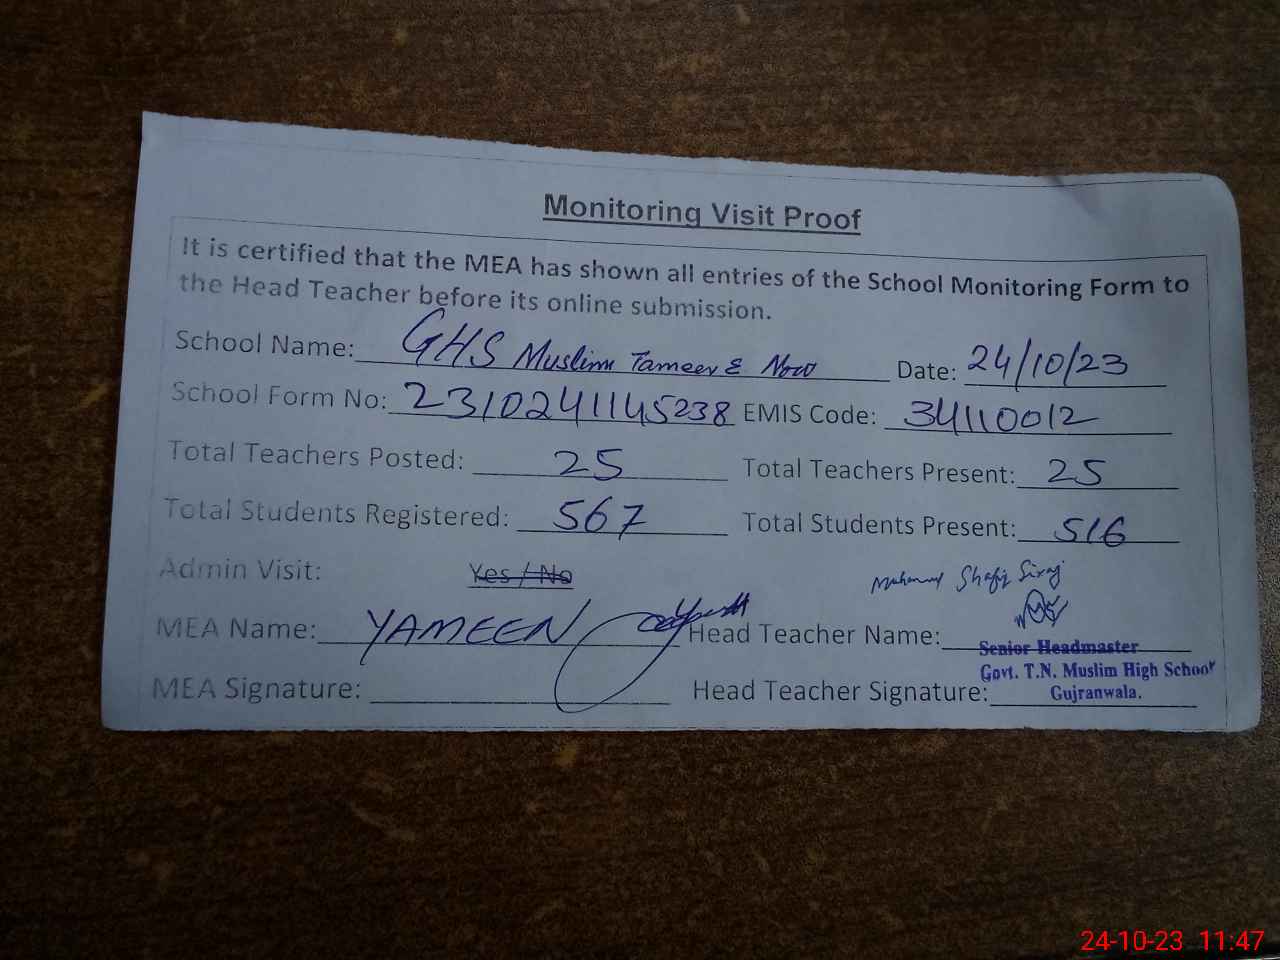 Monitoring Visit Proof
It is certified that the MEA has shown all entries of the School Monitoring Form to
the Head Teacher before its online submission.
School Name: GHS Muslim Tameer E Now Date: 24/10/23
School Form No: 2310241145238 EMIS Code: 34110012
Total Teachers Posted: 25 Total Teachers Present: 25
Total Students Registered: 567 Total Students Present: 516
Admin Visit: Yes / No
Shafiq Siraj
MEA Name: YAMEEN Head Teacher Name:
Senior Headmaster
Govt. T.N. Muslim High School
MEA Signature: Head Teacher Signature: Gujranwala.
24-10-23 11:47